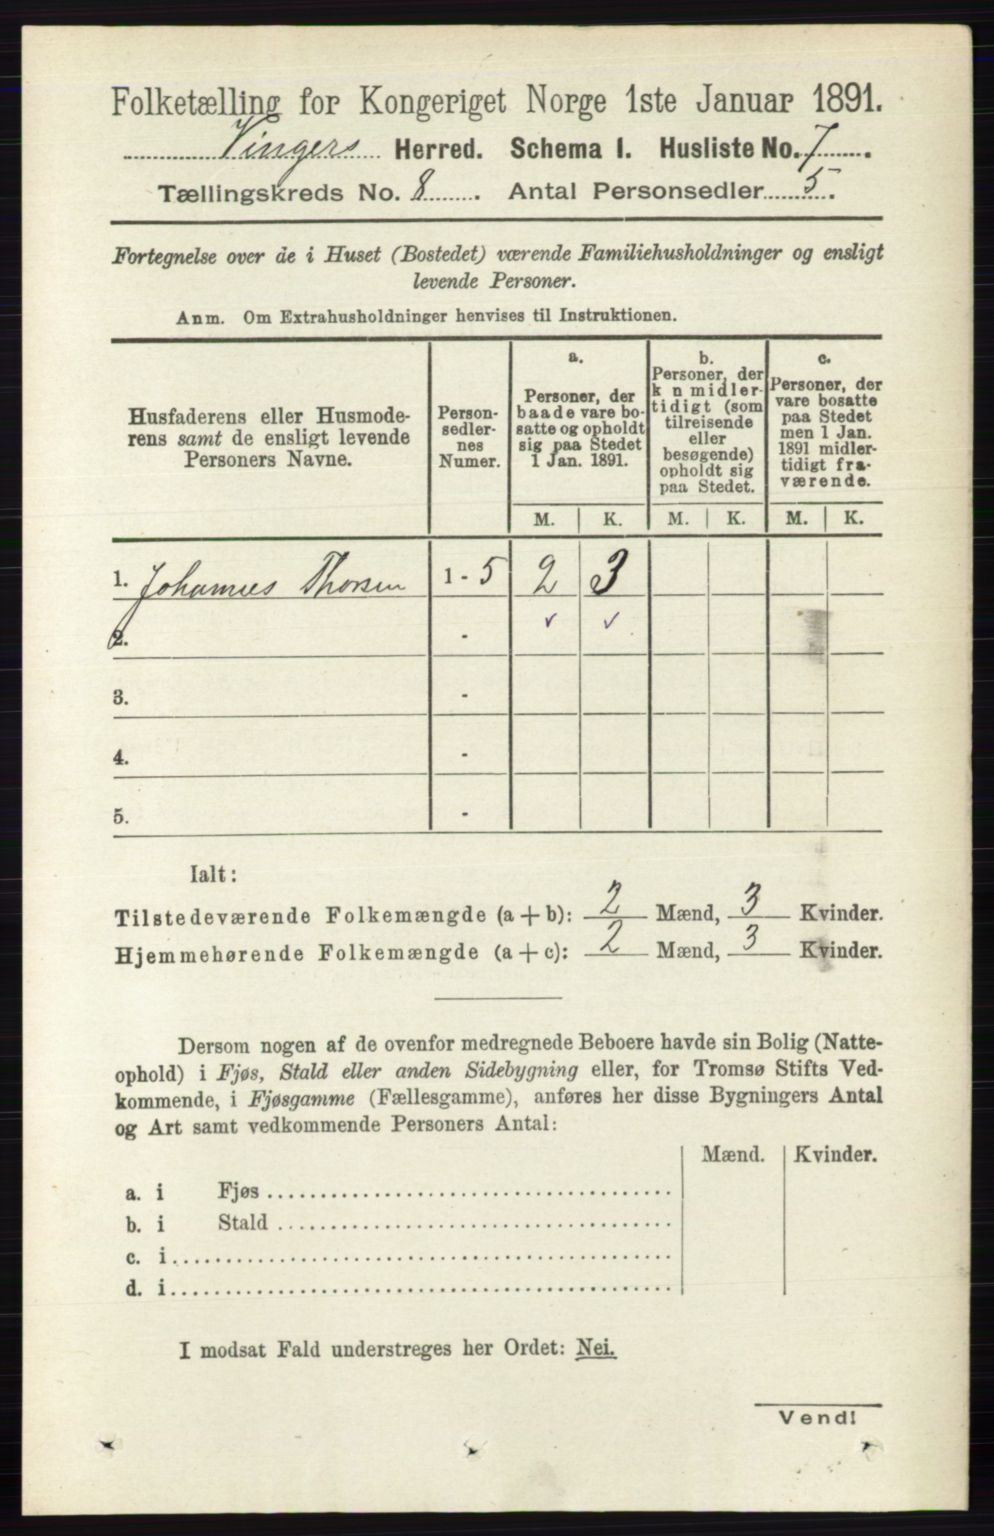 Folketælling for Kongeriget Norge 1ste Januar 1891.
Vingers Herred. Schema I. Husliste No. 7.
Tællingskreds No. 8. Antal Personsedler 5.
Fortegnelse over de i Huset (Bostedet) værende Familiehusholdninger og ensligt
levende Personer.
Anm. Om Extrahusholdninger henvises til Instruktionen.
Husfaderens eller Husmode-
rens samt de ensligt levende
Personers Navne.
Person-
sedler-
nes
Numer.
a.
Personer, der
baade vare bo-
satte og opholdt
sig paa Stedet
1 Jan. 1891.
b.
Personer, der
k n midler-
tidigt (som
tilreisende
eller
besøgende)
opholdt sig
paa Stedet.
c.
Personer, der
vare bosatte
paa Stedet
men 1 Jan.
1891 midler-
tidigt fra-
værende.
M. K. M. K. M. K.
1. Johannes Thorsen 1 - 5 2 3
2. -
3. -
4. -
5. -
Ialt:
Tilstedeværende Folkemængde (a + b): 2 Mænd, 3 Kvinder.
Hjemmehørende Folkemængde (a + c): 2 Mænd, 3 Kvinder.
Dersom nogen af de ovenfor medregnede Beboere havde sin Bolig (Natte-
ophold) i Fjøs, Stald eller anden Sidebygning eller, for Tromsø Stifts Ved-
kommende, i Fjøsgamme (Fællesgamme), anføres her disse Bygningers Antal
og Art samt vedkommende Personers Antal:
Mænd. Kvinder.
a. i Fjøs
b. i Stald
c. i
d. i
I modsat Fald understreges her Ordet: Nei.
Vend!